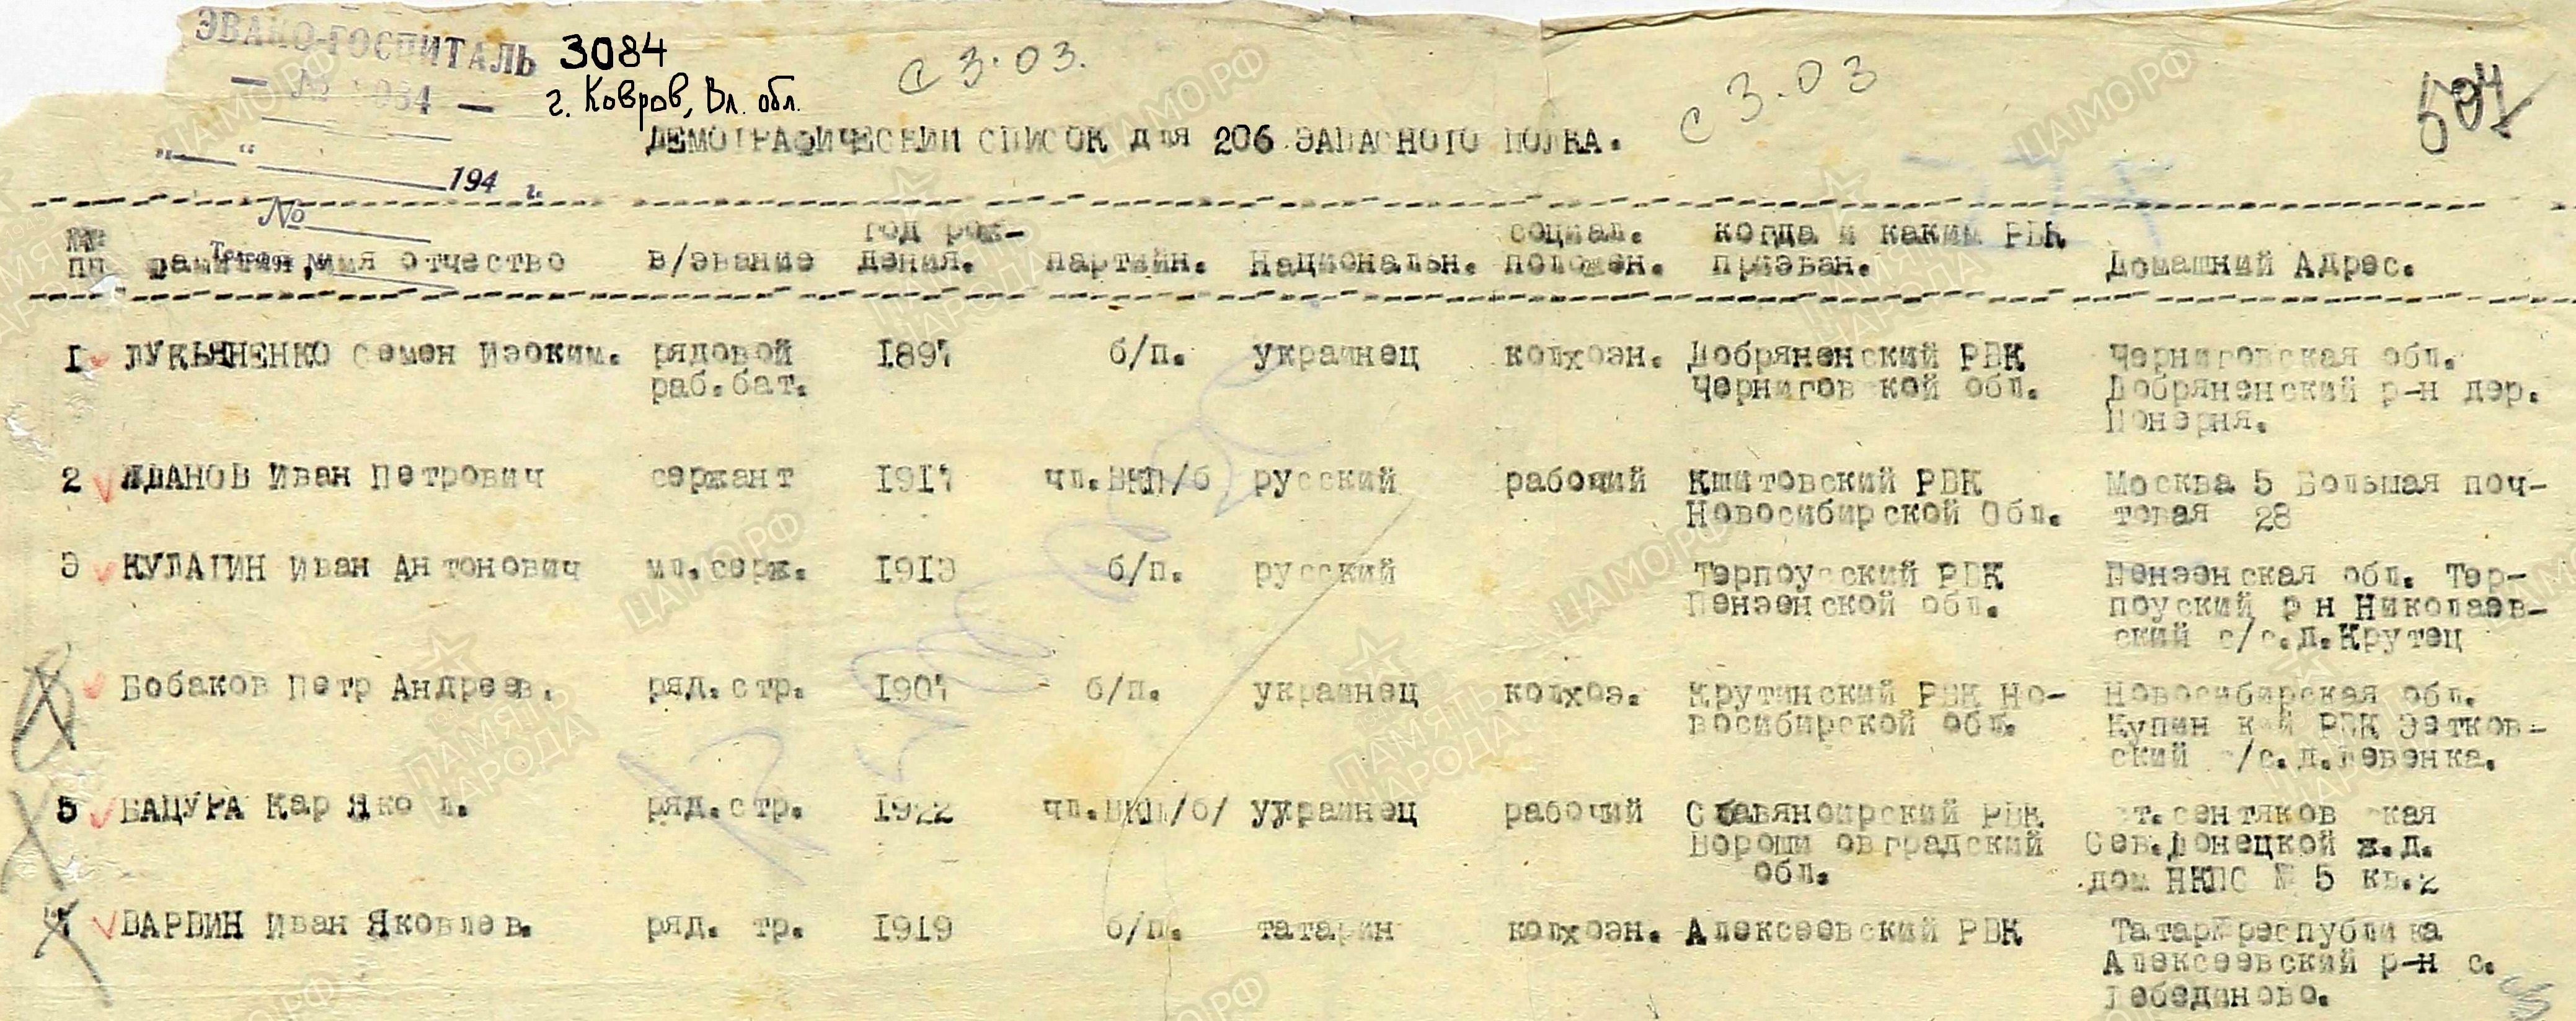 ЭВАКО-ГОСПИТАЛЬ 3084
— № 3084 — г. Ковров, Вл. обл.
с 3.03. с 3.03
ДЕМОГРАФИЧЕСКИЙ СПИСОК для 206 ЗАПАСНОГО ПОЛКА.
"___" ______ 194 г.
№ ______
№№ год рож- социал. когда и каким РВК
пп фамилия, имя отчество в/звание дения. партийн. Национальн. положен. призван. Домашний Адрес.
1 ЛУКЬЯНЕНКО Семен Изоким. рядовой 1897 б/п. украинец колхозн. Добряненский РВК Черниговская обл.
раб.бат. Черниговской обл. Добряненский р-н дер.
Понерня.
2 ЖДАНОВ Иван Петрович сержант 1917 чл.ВКП/б русский рабочий Кштовский РВК Москва 5 Большая поч-
Новосибирской Обл. товая 28
3 КУЛАГИН Иван Антонович мл.серж. 1913 б/п. русский Терпоусский РВК Пензенская обл. Тер-
Пензенской обл. поуский р н Николаев-
ский с/с.д.Крутец
Бобаков Петр Андреев. ряд.стр. 1907 б/п. украинец колхоз. Крутинский РВК Но- Новосибирская обл.
восибирской обл. Купин кий РВК Зятков-
ский с/с.д.Левенка.
5 БАЦУРА Кар Яко л. ряд.стр. 1922 чл.ВКП/б/ уукраинец рабочий Славяноирский РВК ст.сентяков ская
Вороши овградский Сев.Донецкой ж.д.
обл. дом НКПС № 5 кв.2
ВАРВИН Иван Яковлев. ряд. тр. 1919 б/п. татарин колхозн. Алексеевский РВК Татар республика
Алексеевский р-н с.
Лебединово.